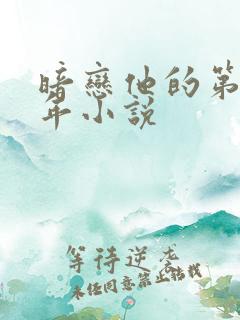 暗戀他的第
年小說
等待逆龙
未经同意禁止转载